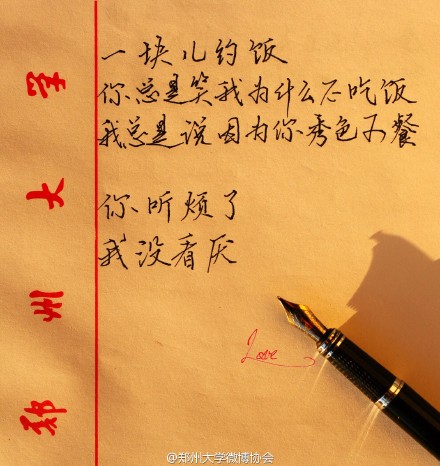 郑州大学
一块儿约饭
你总是笑我为什么不吃饭
我总是说因为你秀色可餐
你听烦了
我没看厌
Love
@郑州大学微博协会